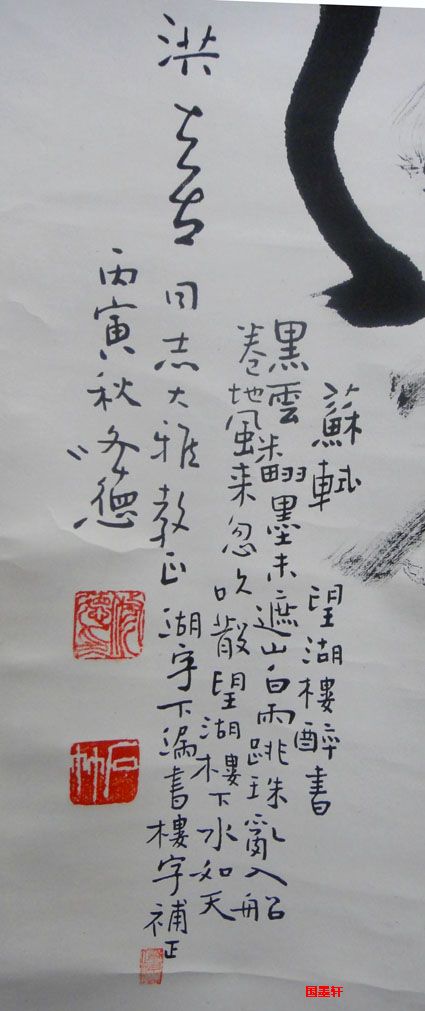 蘇軾 望湖樓醉書
黑雲翻墨未遮山白雨跳珠亂入船
卷地風来忽吹散望湖樓下水如天
洪 同志大雅教正 湖字下漏書樓字補正
丙寅秋 德
国墨轩